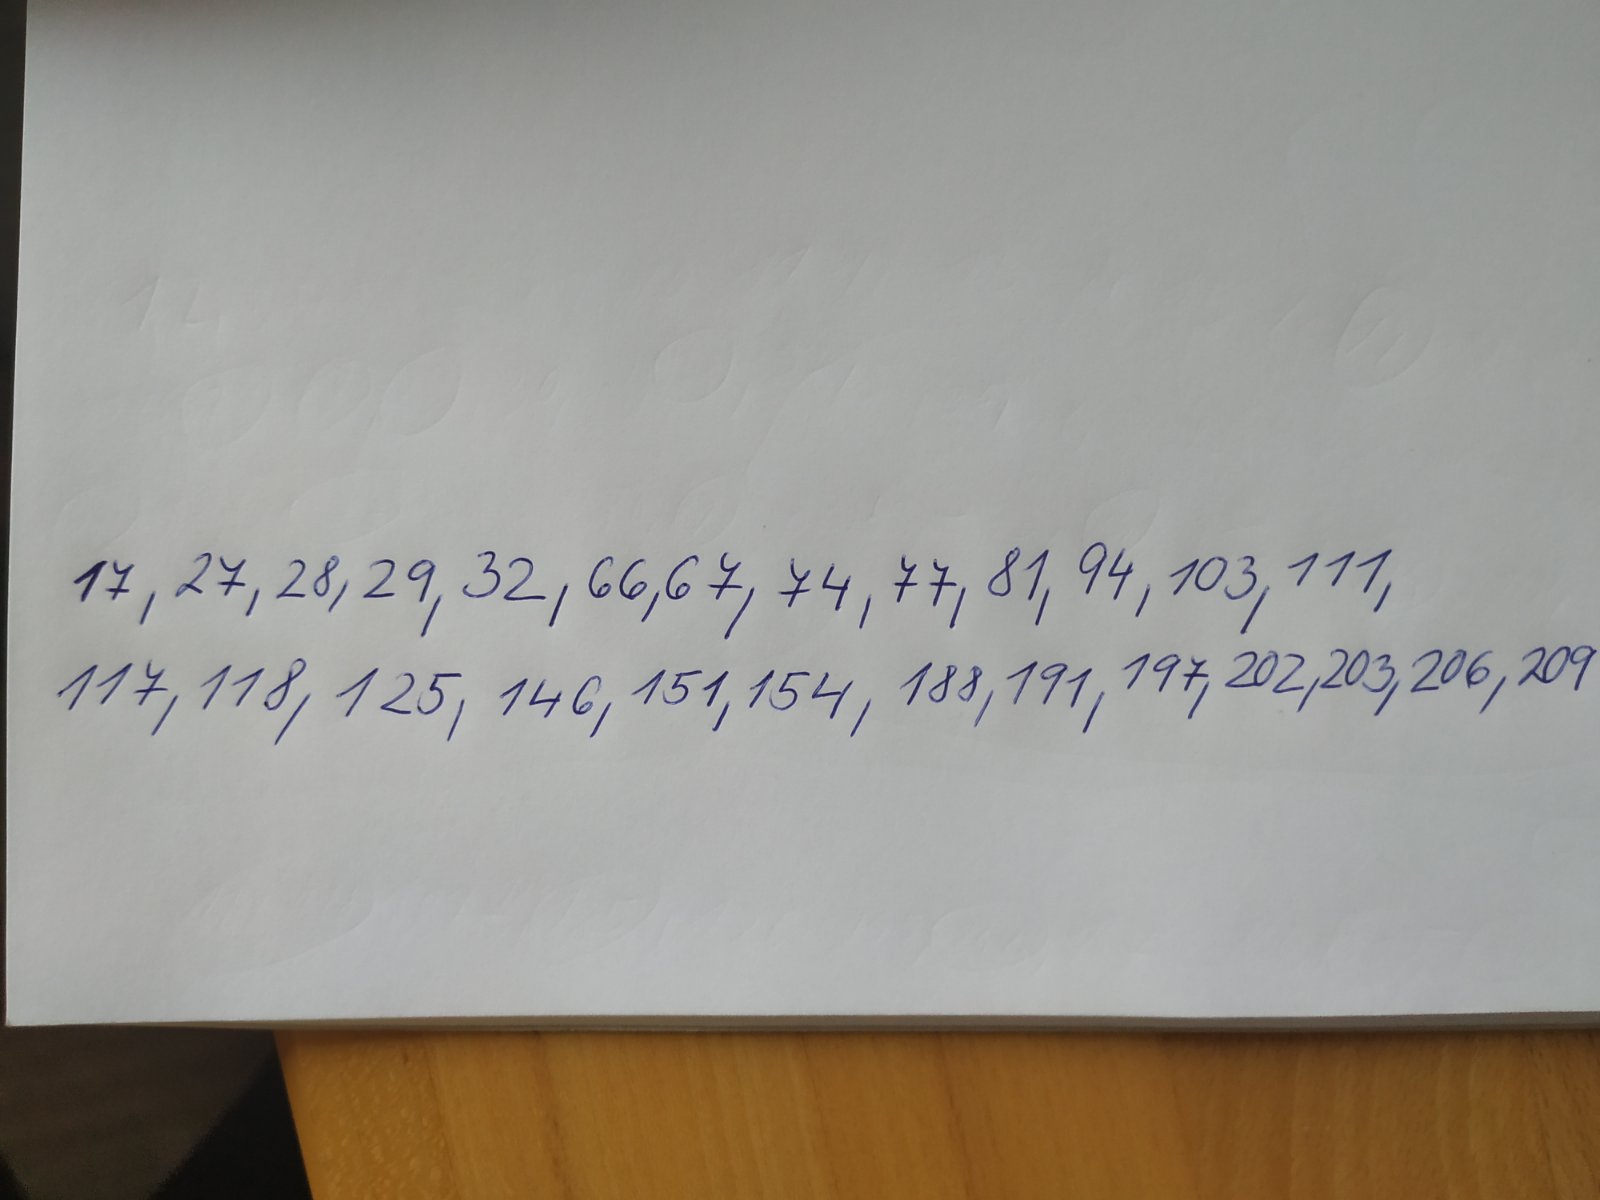 17, 27, 28, 29, 32, 66, 67, 74, 77, 81, 94, 103, 111,
117, 118, 125, 146, 151, 154, 188, 191, 197, 202, 203, 206, 209